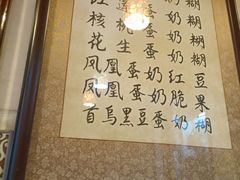 核桃蛋奶糊
花生蛋奶糊
凤凰蛋奶红豆
凤凰蛋奶脆果
首乌黑豆蛋奶糊